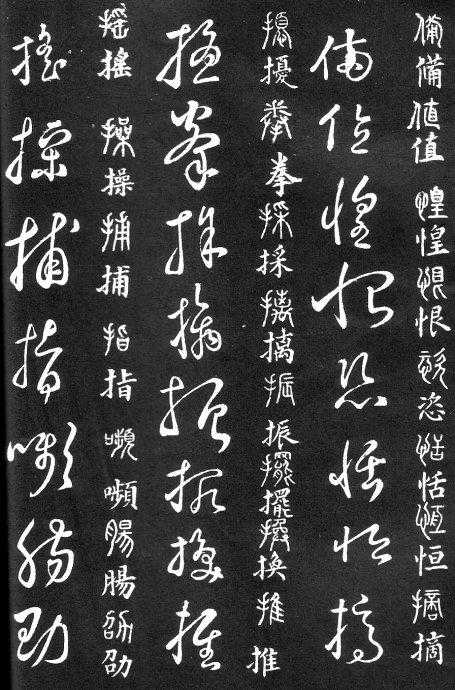 備備值值惶惶恨恨恣恣恬恬恒恒摘摘
備值惶恨恣恬恒摘
擾擾拳拳採採摛摛振振擺擺換換推推
擾拳採摛振擺換推
搖搖操操捕捕指指嚬嚬腸腸劭劭
搖操捕指嚬腸劭